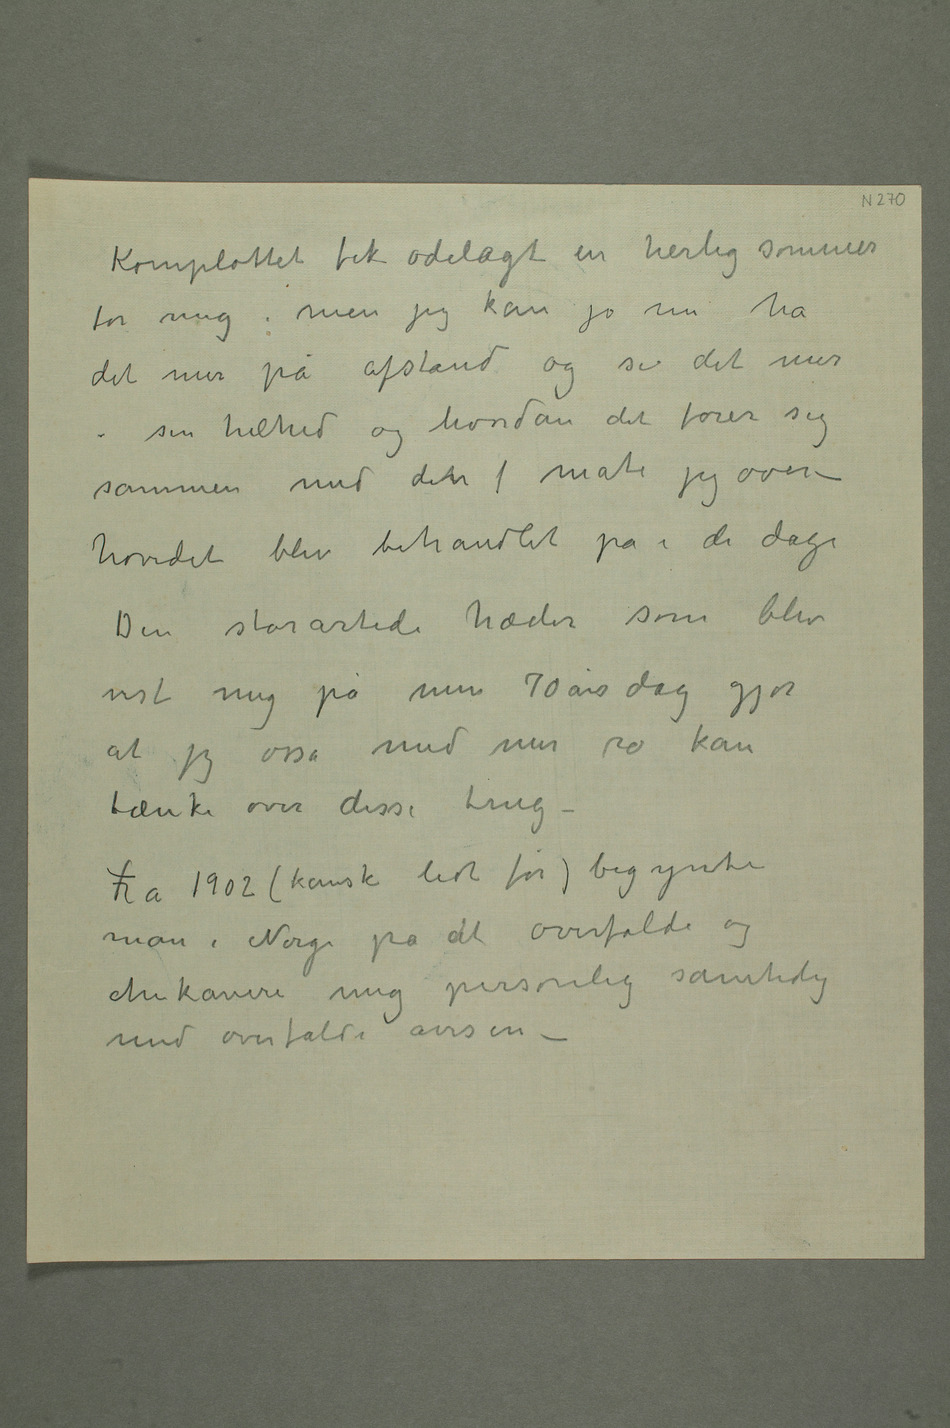 N 270
Komplottet fik ødelagt en herlig sommer
for mig. men jeg kan jo nu ha
det mer på afstand og se det mer
i sin helhed og hvordan det føier sig
sammen med den måte jeg over-
hovedet blev behandlet på i de dage
Den storartede hæder som blev
vist mig på min 70 års dag gjør
at jeg osså med mer ro kan
tænke over disse ting –
Fra 1902 (kansk lidt før) begynte
man i Norge på at overfalde og
chikanere mig personlig samtidig
med overfalde avisen –